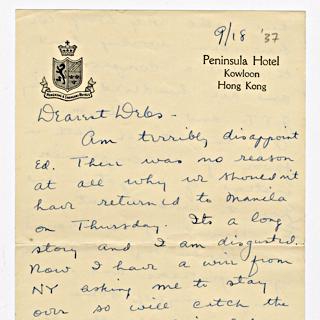 9/18 '37
Peninsula Hotel
Kowloon
Hong Kong
Dearest Debs -
Am terribly disappoint
ed. There was no reason
at all why we shouldn't
have returned to Manila
on Thursday. Its a long
story and I am disgusted.
Now I have a wire from
NY asking me to stay
over so will catch the